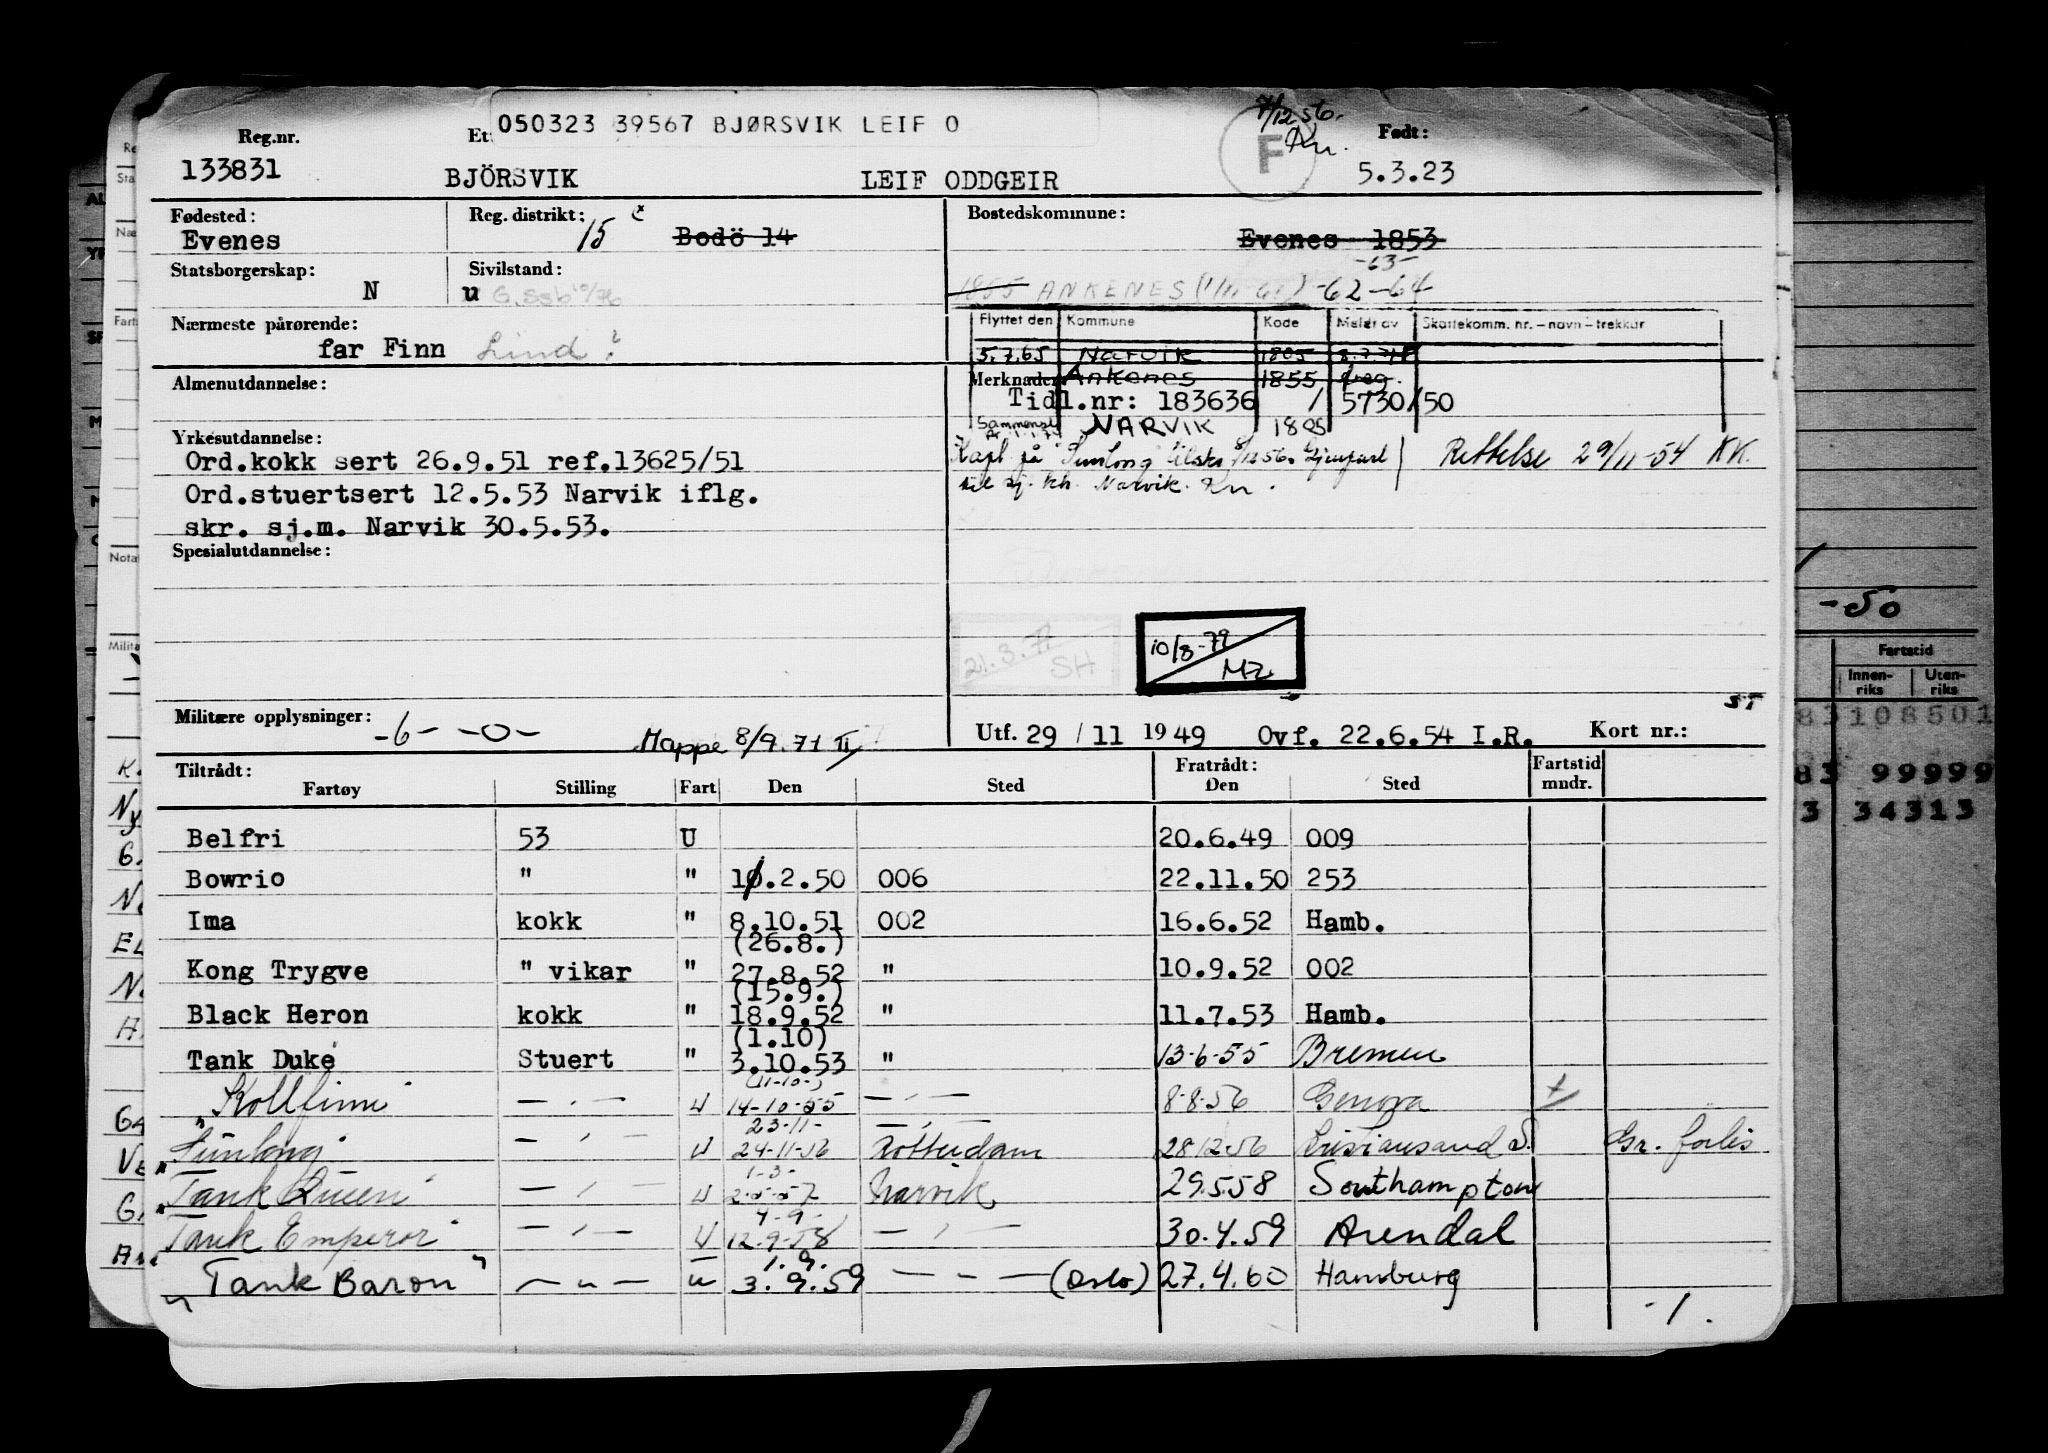 7/12 56.
Kn.
Reg.nr.
Et
050323 39567 BJØRSVIK LEIF O
F
Født:
133831
BJÖRSVIK
LEIF ODDGEIR
5.3.23
Fødested:
Reg. distrikt:
Bostedskommune:
Evenes
15
Bodö 14
Evenes 1853
-63-
Statsborgerskap:
Sivilstand:
N
u
G.
1855 ANKENES (1/11 61) -62-64
Flyttet den Kommune Kode Meldt av Skattekomm. nr. – navn – trekkår
Nærmeste pårørende:
far Finn Lind?
5.7.65 Narvik 1805
Almenutdannelse:
Merknader: Ankenes 1855
Tidl.nr: 183636 / 5730/50
NARVIK 1805
Yrkesutdannelse:
Ord.kokk sert 26.9.51 ref.13625/51
Rettelse 29/11-54 KK.
Narvik. Kn.
Ord.stuertsert 12.5.53 Narvik iflg.
skr. sj.m. Narvik 30.5.53.
Spesialutdannelse:
21.3.77
SH
10/8-79
MZ
ST
Militære opplysninger:
-6- -0-
Mappe 8/9.71 II
Utf. 29 / 11 1949 Ovf. 22.6.54 I.R. Kort nr.:
Tiltrådt:
Fratrådt:
Fartstid
Fartøy Stilling Fart Den Sted Den Sted mndr.
Belfri 53 U 20.6.49 009
Bowrio " " 11.2.50 006 22.11.50 253
Ima kokk " 8.10.51 002 16.6.52 Hamb.
(26.8.)
Kong Trygve " vikar " 27.8.52 " 10.9.52 002
(15.9.)
Black Heron kokk " 18.9.52 " 11.7.53 Hamb.
(1.10)
Tank Duke Stuert " 3.10.53 " 13-6-55 Bremen
(11-10-)
"Kollfinn" — " — U 14-10-55 — " — 8-8-56 Genova
23-11-
"Sunlong" — " — U 24-11-56 Rotterdam 28 12-56 Kristiansand S. Gr. forlis
1-3-
"Tank Queen" — " — U 2-5-57 Narvik 29.5.58 Southampton
4-9-
Tank Emperor" — " — U 12-9-58 — " — 30.4.59 Arendal
1.9.
"Tank Baron" — " — u 3.9.59 — " — (Oslo) 27.4.60 Hamburg
-1.
-50
Fartstid
Innen-
riks
Uten-
riks
83 108501
83 99999
3 34313